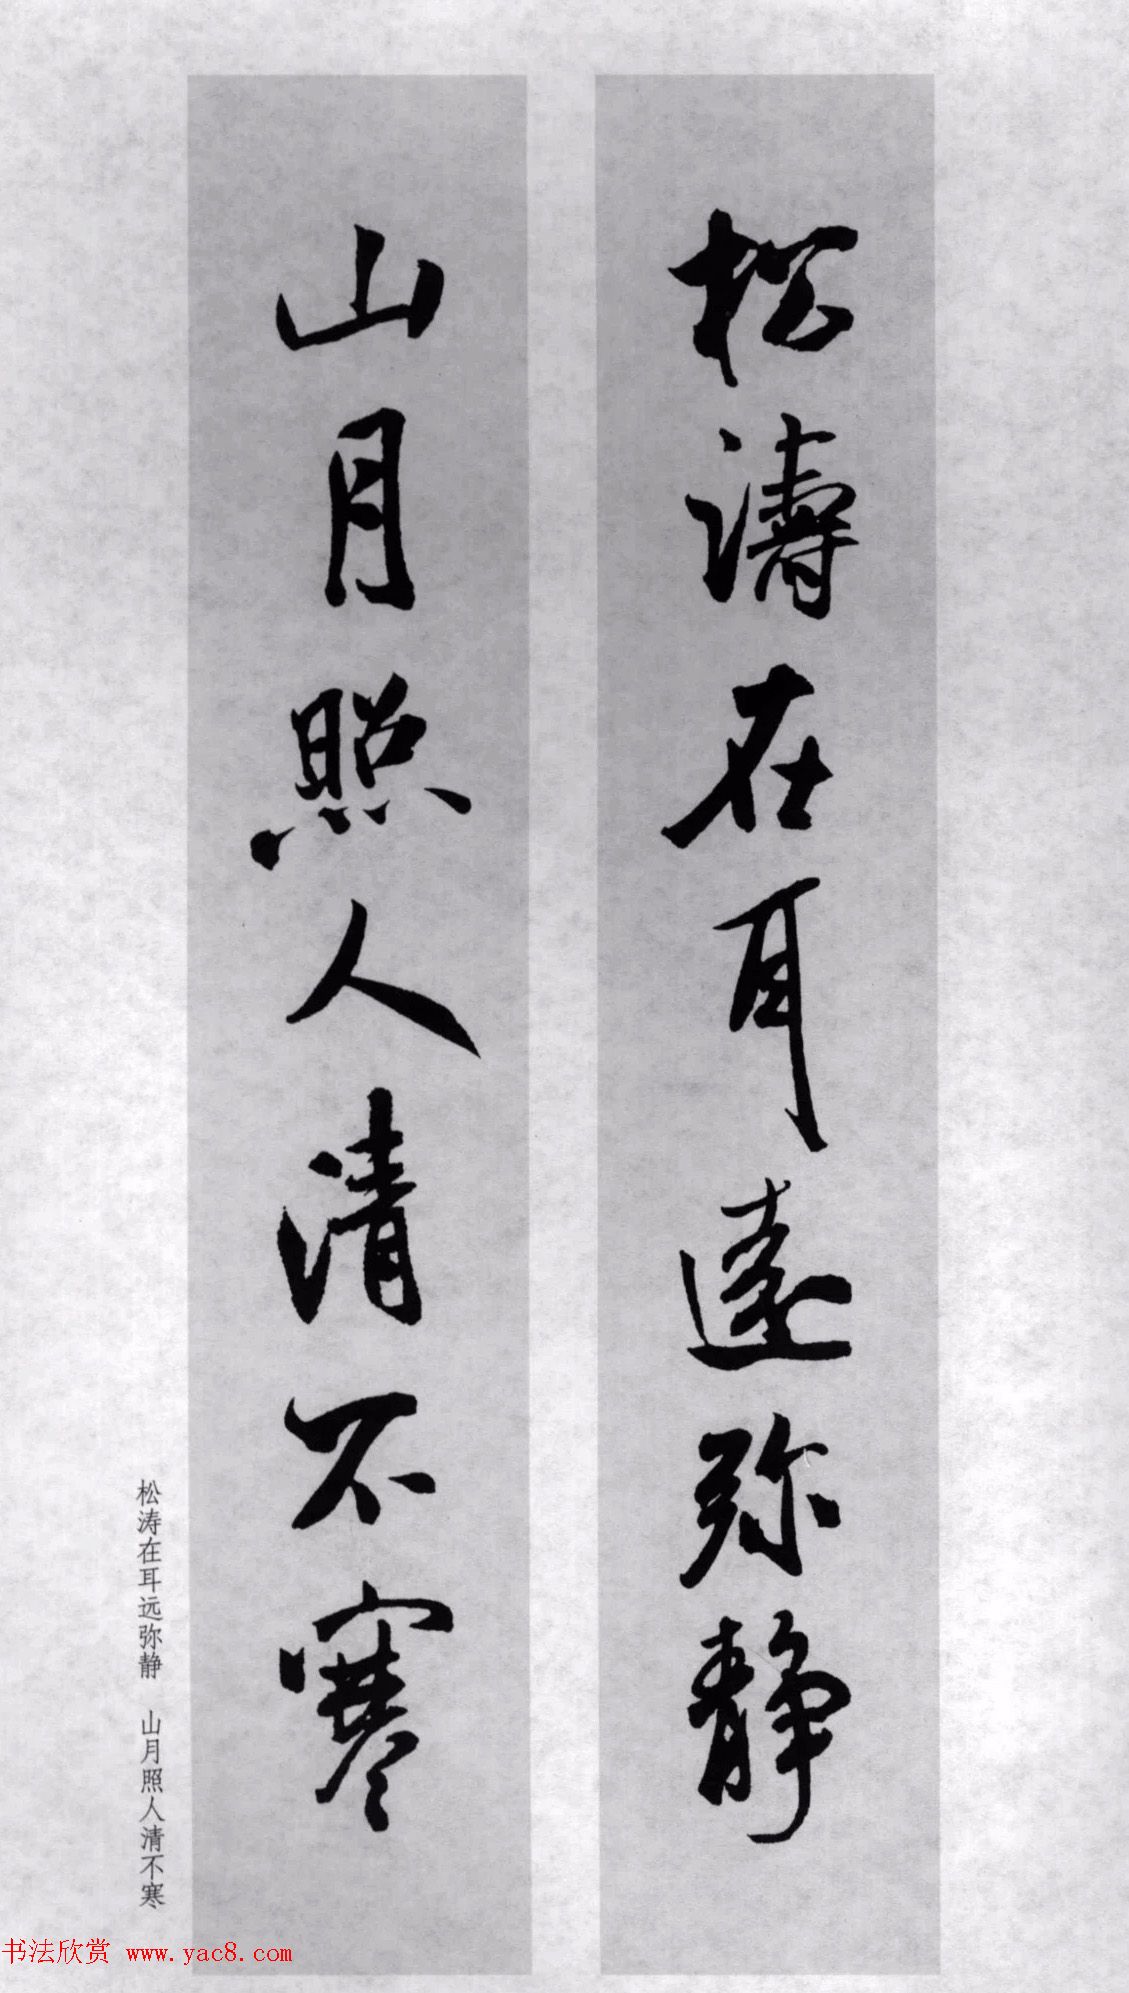 松濤在耳遠弥静
山月照人清不寒
松涛在耳远弥静　山月照人清不寒
书法欣赏 www.yac8.com